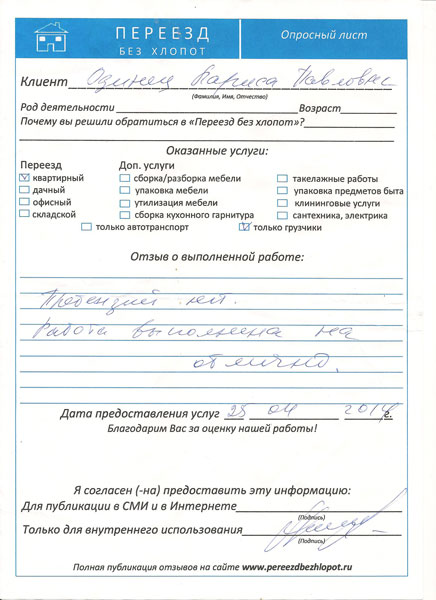 ПЕРЕЕЗД
БЕЗ ХЛОПОТ
Опросный лист
Клиент Одинец Лариса Павловна
(Фамилия, Имя, Отчество)
Род деятельности Возраст
Почему вы решили обратиться в «Переезд без хлопот»?
Оказанные услуги:
Переезд Доп. услуги
квартирный сборка/разборка мебели такелажные работы
дачный упаковка мебели упаковка предметов быта
офисный утилизация мебели клининговые услуги
складской сборка кухонного гарнитура сантехника, электрика
только автотранспорт только грузчики
Отзыв о выполненной работе:
Претензий нет.
Работа выполнена на
отлично.
Дата предоставления услуг 25 04 2014 г.
Благодарим Вас за оценку нашей работы!
Я согласен (-на) предоставить эту информацию:
Для публикации в СМИ и в Интернете
(Подпись)
Только для внутреннего использования
(Подпись)
Полная публикация отзывов на сайте www.pereezdbezhlopot.ru